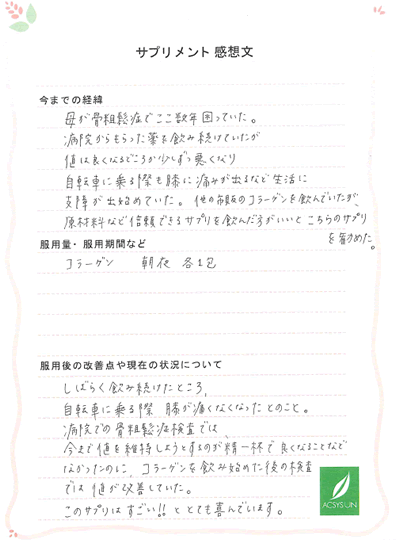 サプリメント 感想文
今までの経緯
母が骨粗鬆症でここ数年困っていた。
病院からもらった薬を飲み続けていたが
値は良くなるどころか少しずつ悪くなり
自転車に乗る際も膝に痛みが出るなど生活に
支障が出始めていた。他の市販のコラーゲンを飲んでいたが、
原材料など信頼できるサプリを飲んだ方がいいと こちらのサプリ
を勧めた。
服用量・服用期間など
コラーゲン 朝夜 各1包
服用後の改善点や現在の状況について
しばらく飲み続けたところ、
自転車に乗る際 膝が痛くなくなったとのこと。
病院での骨粗鬆症検査では、
今まで値を維持しようとするのが精一杯で良くなることなど
なかったのに、コラーゲンを飲み始めた後の検査
では値が改善していた。
このサプリはすごい!!ととても喜んでいます。
ACSYSUN